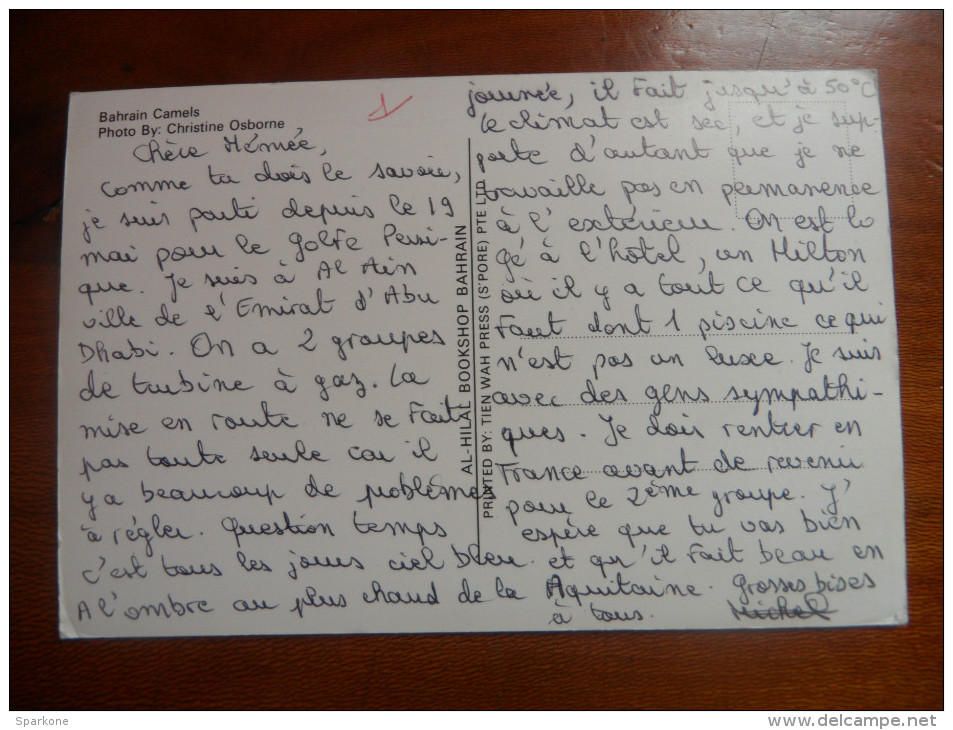 Bahrain Camels
Photo By: Christine Osborne
Chère Mémée,
comme tu dois le savoir,
je suis parti depuis le 19
mai pour le golfe Persi-
que. Je suis à Al Ain
ville de l'Emirat d'Abu
Dhabi. On a 2 groupes
de turbine à gaz. La
mise en route ne se fait
pas toute seule car il
y a beaucoup de problèmes
à régler. Question temps
c'est tous les jours ciel bleu.
A l'ombre au plus chaud de la
AL-HILAL BOOKSHOP BAHRAIN
PRINTED BY: TIEN WAH PRESS (S'PORE) PTE LTD
journée, il fait jusqu'à 50°C
le climat est sec, et je sup-
porte d'autant que je ne
travaille pas en permanence
à l'extérieur. On est lo
gé à l'hôtel, un Hilton
où il y a tout ce qu'il
faut dont 1 piscine ce qui
n'est pas un luxe. Je suis
avec des gens sympathi-
ques. Je dois rentrer en
France avant de revenir
pour le 2ème groupe. J'
espère que tu vas bien
et qu'il fait beau en
Aquitaine. Grosses bises
à tous. Michel
Sparkone
www.delcampe.net